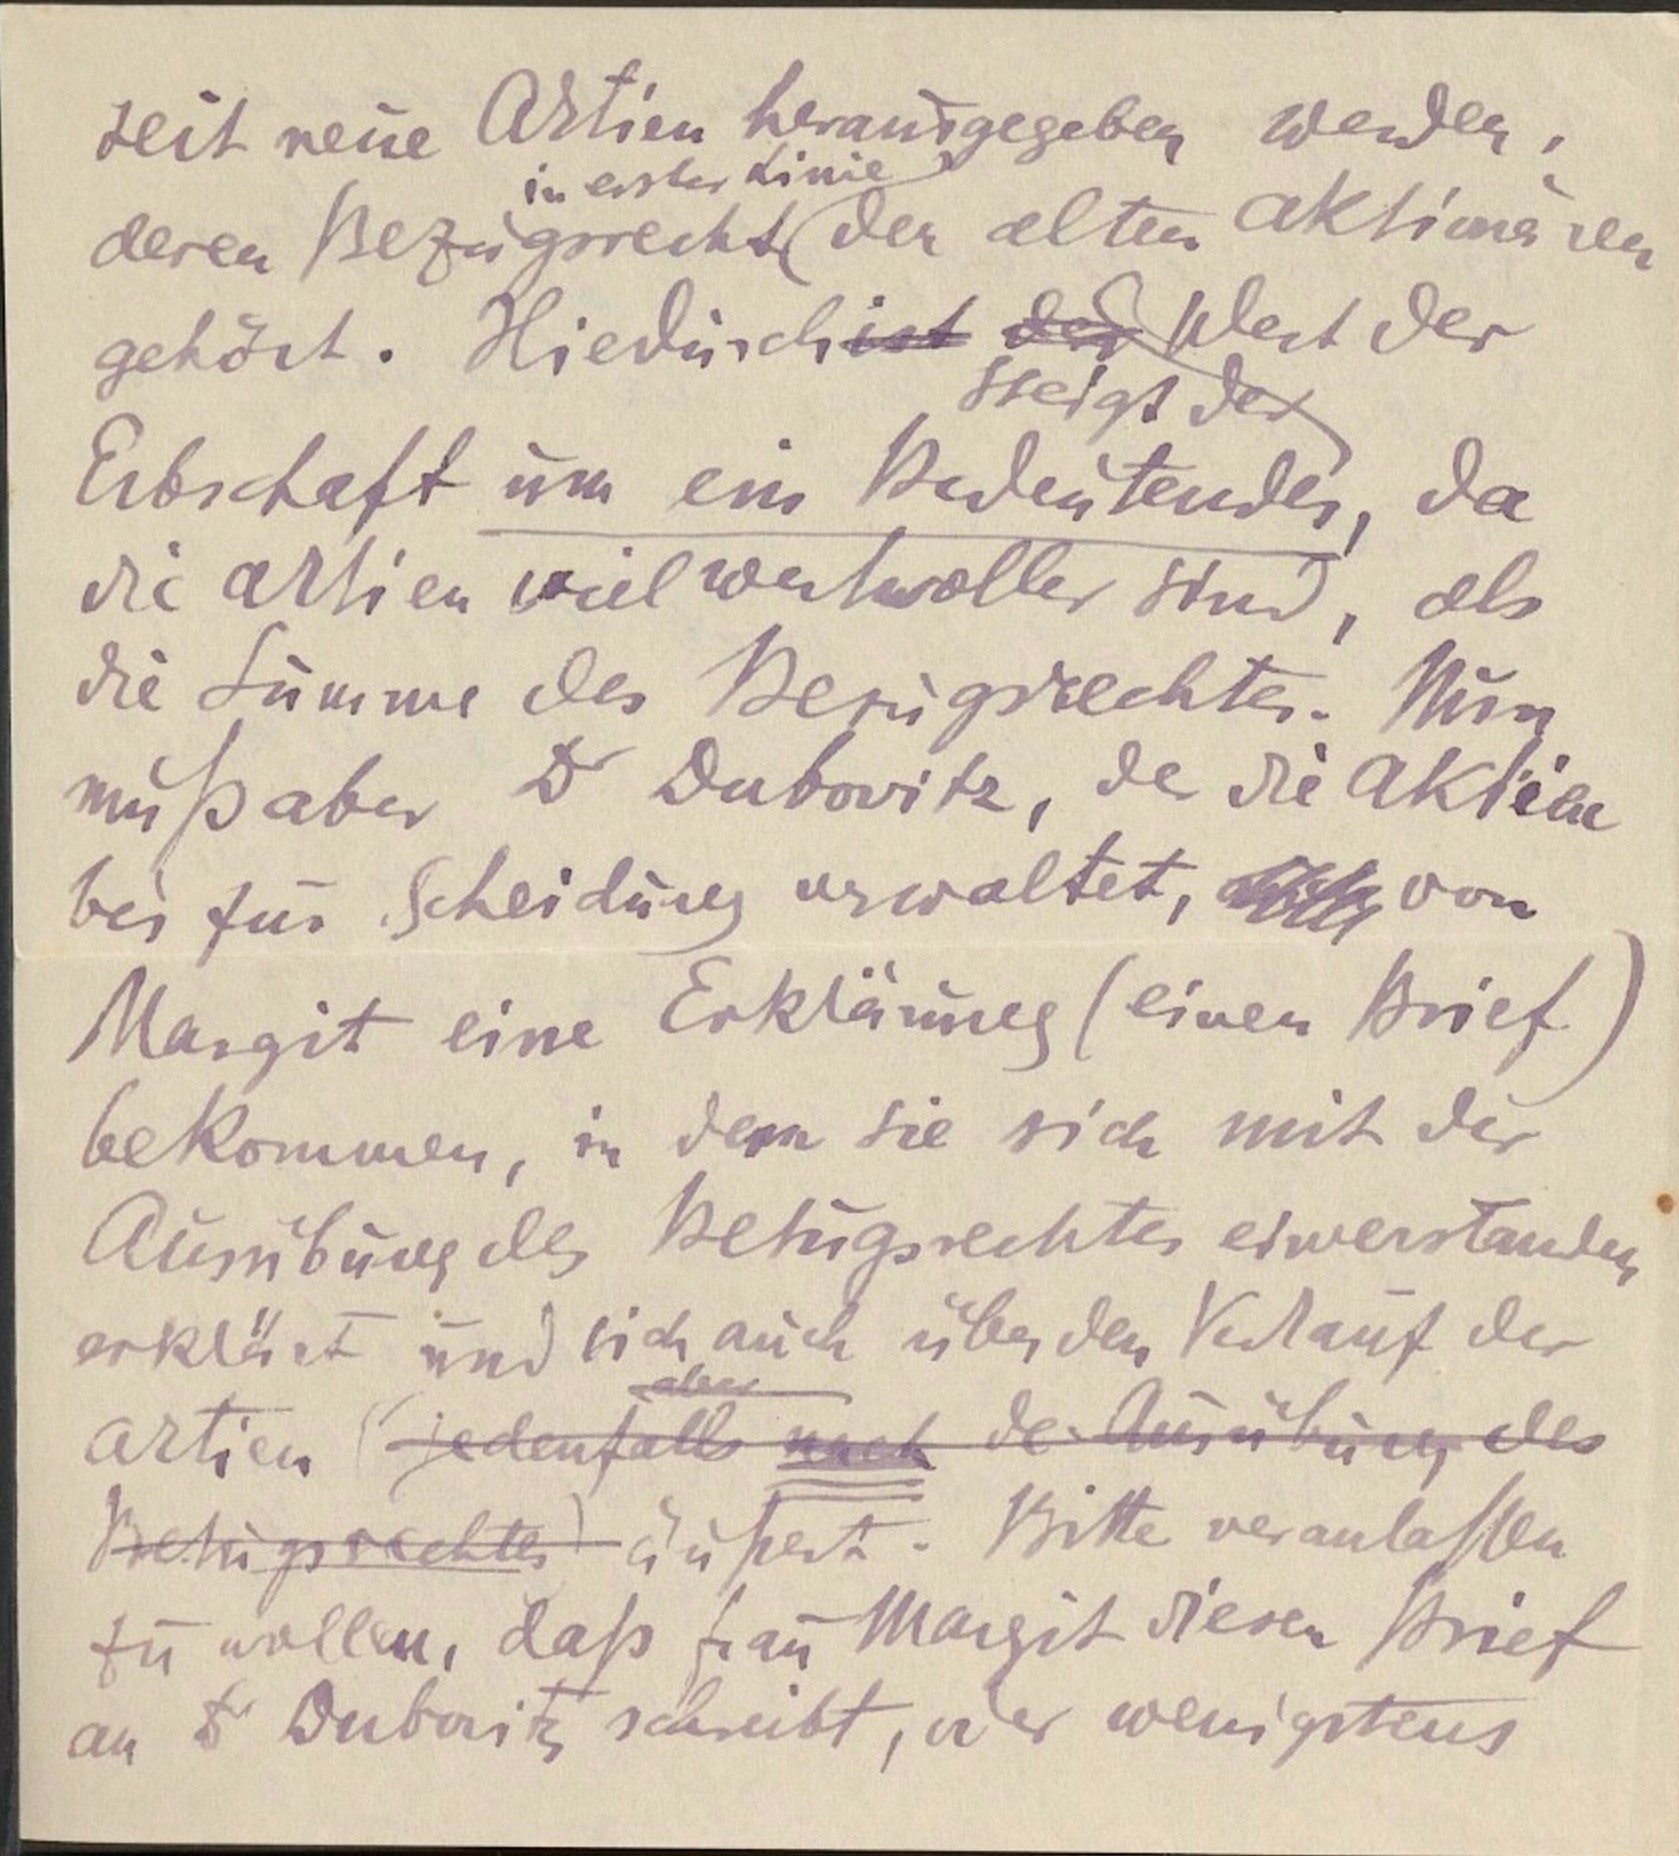 zeit neue Aktien herausgegeben werden,
in erster Linie
deren Bezugsrecht den alten Aktionären
gehört. Hiedurch ist der Wert der
steigt der
Erbschaft um ein Bedeutendes, da
die Aktien viel wertvoller sind, als
die Summe des Bezugsrechtes. Nun
muß aber Dr Dubovitz, der die Aktien
bis zur Scheidung verwaltet, von
Margit eine Erklärung (einen Brief)
bekommen, in dem sie sich mit der
Ausübung des Bezugsrechtes einverstanden
erklärt und sich auch über den Verkauf der
aber
Aktien (jedenfalls nach der Ausübung des
Bezugsrechtes) äußert. Bitte veranlaßen
zu wollen, daß Frau Margit diesen Brief
an Dr Dubovitz schreibt, oder wenigstens